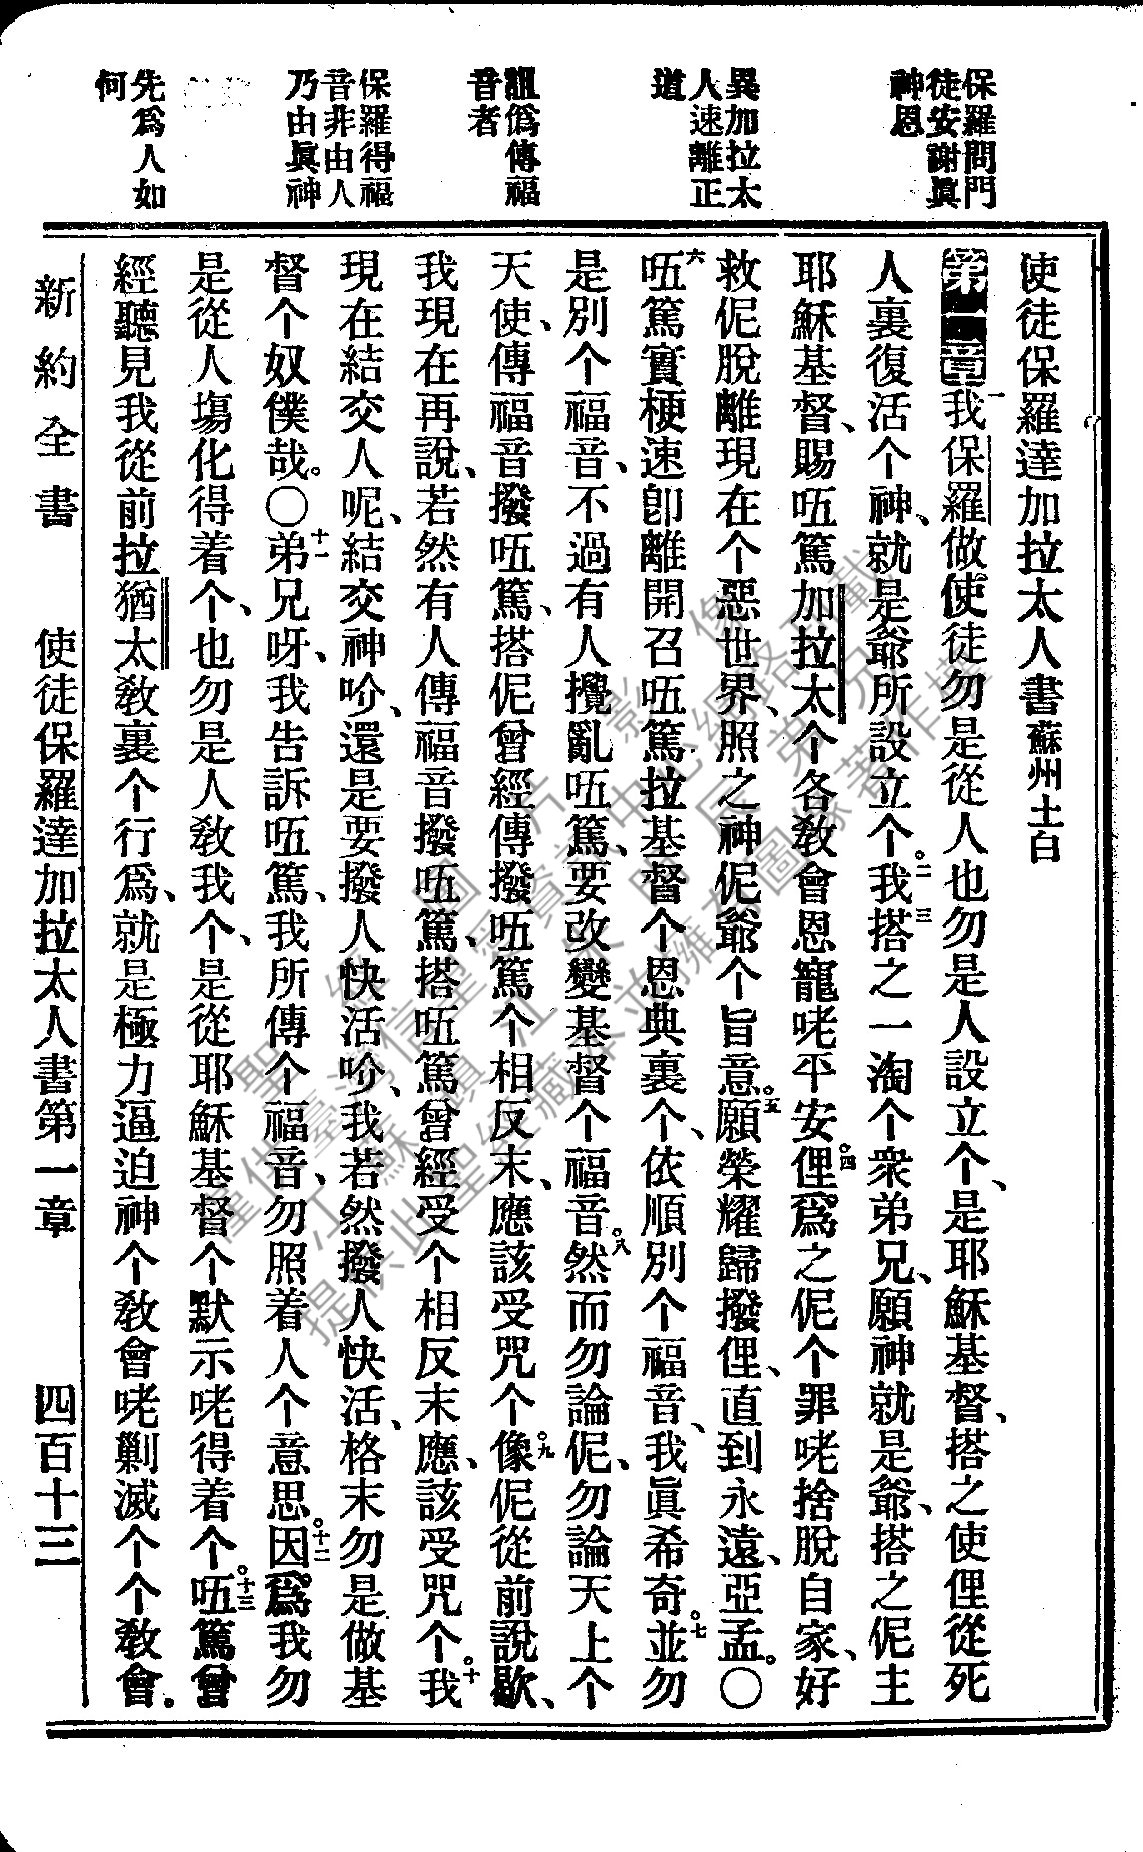 保羅問門
徒安謝眞
神恩
異加拉太
人速離正
道
詛僞傳福
音者
保羅得福
音非由人
乃由眞神
先爲人如
何
使徒保羅達加拉太人書蘇州土白
第一章一我保羅做使徒勿是從人也勿是人設立个、是耶穌基督、搭之使俚從死
人裏復活个神、就是爺所設立个。二我三搭之一淘个衆弟兄、願神就是爺、搭之伲主
耶穌基督、賜㕶篤加拉太个各敎會恩寵咾平安。四俚爲之伲个罪咾捨脫自家、好
救伲脫離現在个惡世界、照之神伲爺个旨意。五願榮耀歸撥俚、直到永遠、亞孟。〇
六㕶篤實梗速卽離開召㕶篤拉基督个恩典裏个、依順別个福音、我眞希奇。七並勿
是別个福音、不過有人攪亂㕶篤、要改變基督个福音。八然而勿論伲、勿論天上个
天使、傳福音撥㕶篤、搭伲曾經傳撥㕶篤个相反末、應該受咒个。九像伲從前說歇、
我現在再說、若然有人傳福音撥㕶篤、搭㕶篤曾經受个相反末、應該受咒个。十我
現在結交人呢、結交神吤、還是要撥人快活吤、我若然撥人快活、格末勿是做基
督个奴僕哉。〇十一弟兄呀、我告訴㕶篤、我所傳个福音、勿照着人个意思。十二因爲我勿
是從人塲化得着个、也勿是人敎我个、是從耶穌基督个默示咾得着个。十三㕶篤曾
經聽見我從前拉猶太敎裏个行爲、就是極力逼迫神个敎會咾剿滅个个敎會。
新約全書　使徒保羅達加拉太人書第一章　四百十三
聖經圖片影像
僅供臺灣信望愛資訊中心網路刊載
江蘇鎮江朱明展弟兄
提供此聖經藏本並擁有圖像著作權